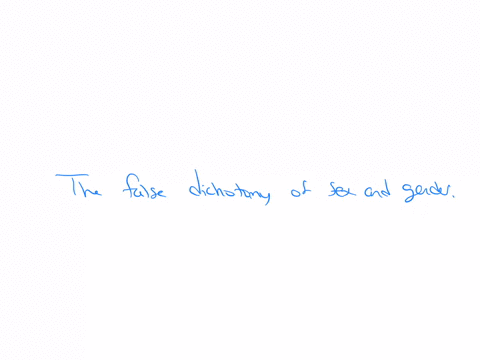 The false dichotomy of sex and gender.